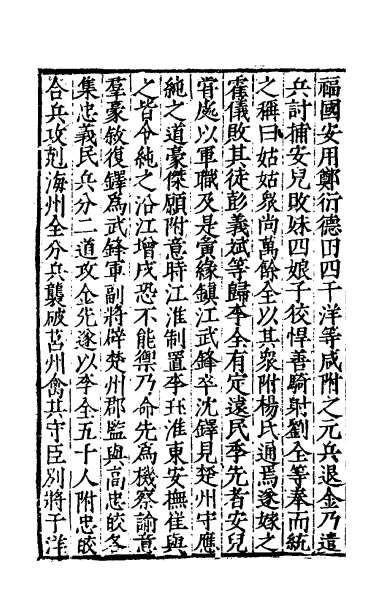 福國安用鄭衍德田四于洋等咸附之元兵退金乃遣
兵討捕安兒敗妹四娘子狡悍善騎射劉全等奉而統
之稱曰姑姑衆尚萬餘全以其衆附楊氏通焉遂嫁之
霍儀敗其徒彭義斌等歸李全有定遠民李先者安兒
甞處以軍職及是寅緣鎮江武鋒卒沈鐸見楚州守應
純之道豪傑願附意時江淮制置李珏淮東安撫崔與
之皆令純之沿江增戍恐不能禦乃命先為機察諭意
羣豪敘復鐸為武鋒軍副將辟楚州郡監與高忠皎各
集忠義民兵分二道攻金先遂以李全五千人附忠皎
合兵攻剋海州全分兵襲破莒州禽其守臣別將于洋